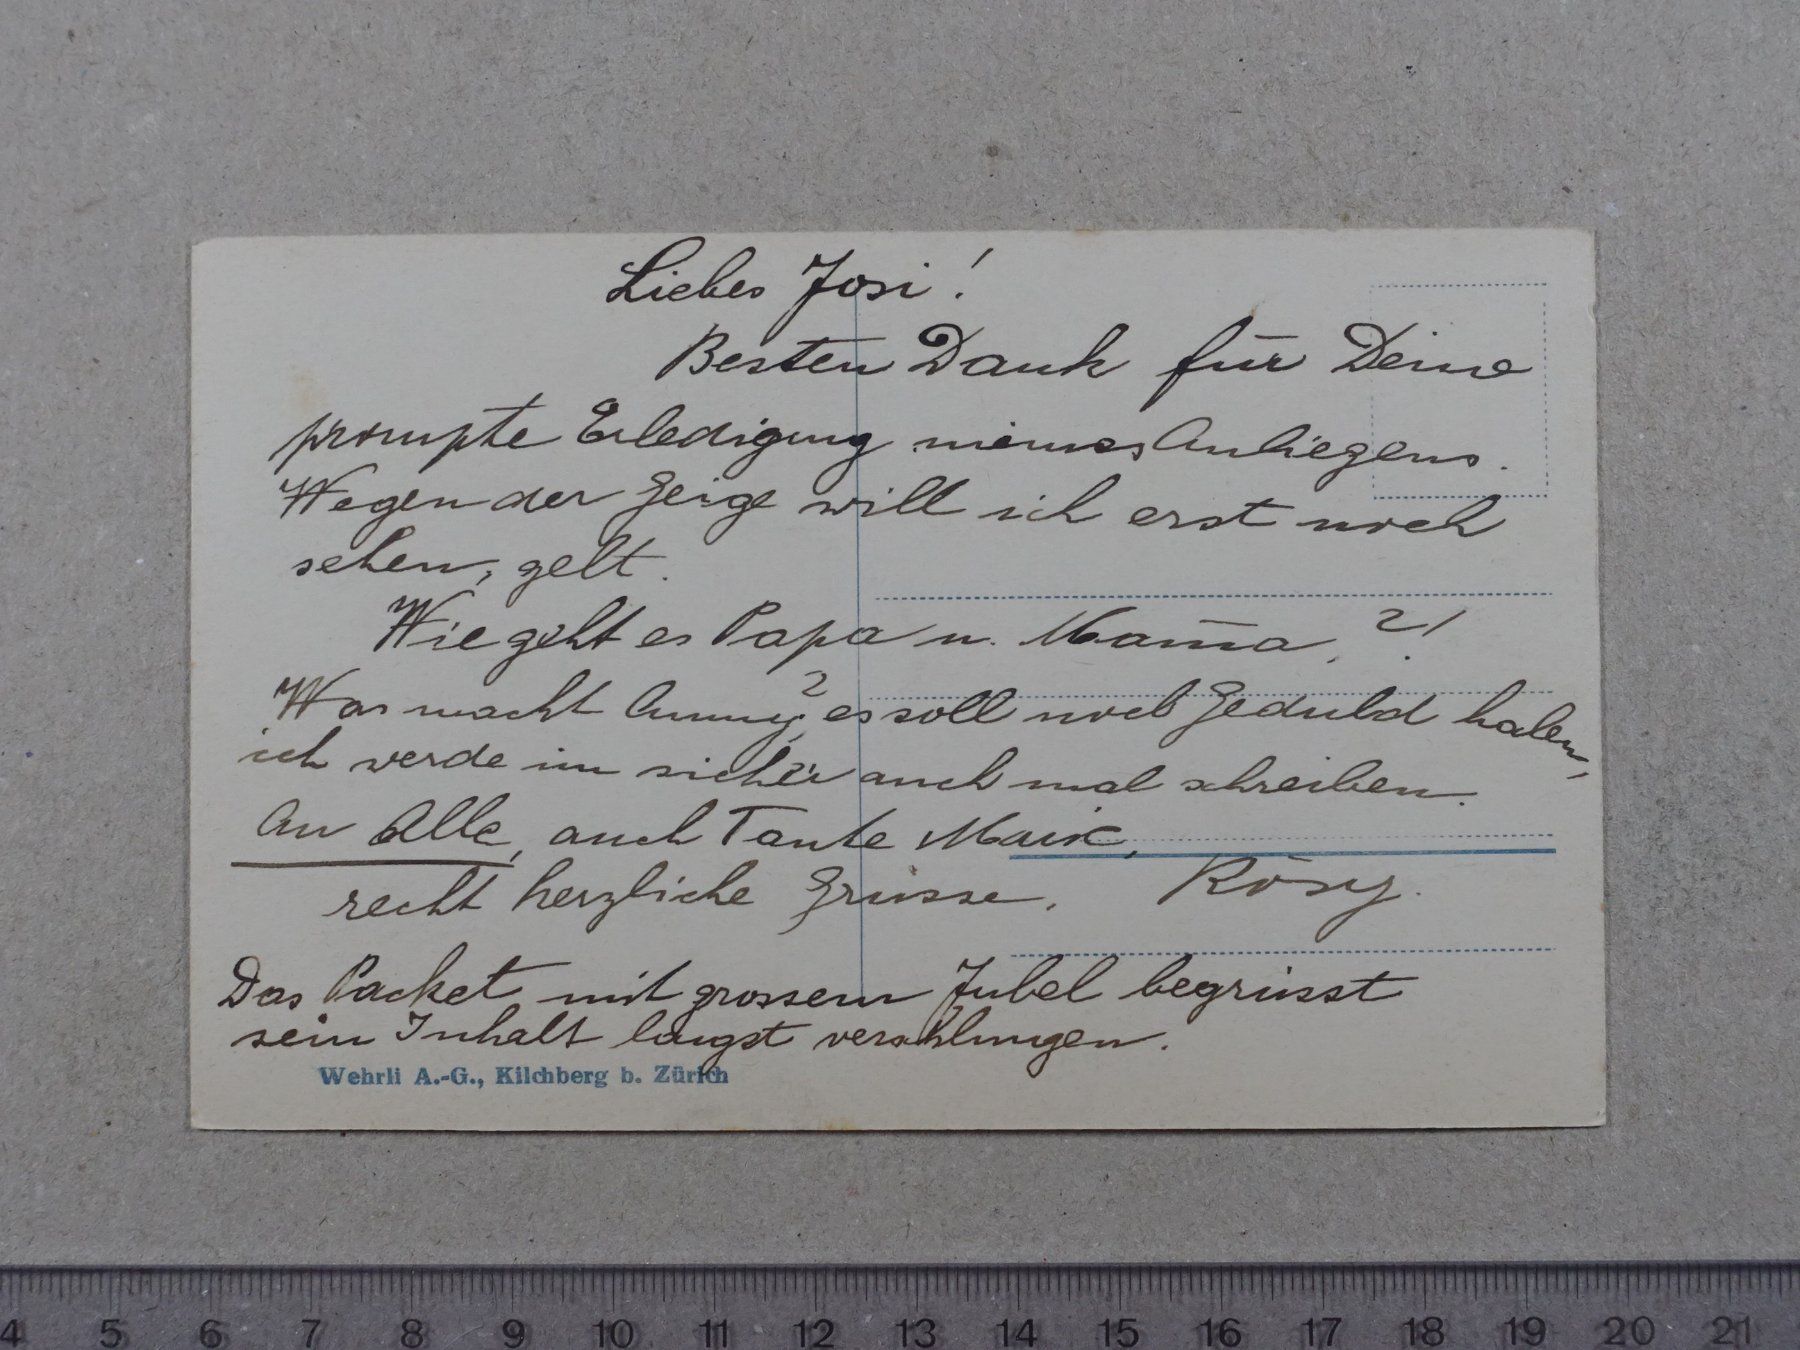 Liebes Josi!
Besten Dank für Deine
prompte Erledigung meines Anliegens.
Wegen der Geige will ich erst noch
sehen, gelt.
Wie geht es Papa u. Mam̄a, ?!
Was macht Anny? es soll noch Geduld haben,
ich werde im sicher auch mal schreiben.
An Alle, auch Tante Marie,
recht herzliche Grüsse. Rösy.
Das Packet mit grossem Jubel begrüsst
sein Inhalt längst verschlungen.
Wehrli A.-G., Kilchberg b. Zürich
4 5 6 7 8 9 10 11 12 13 14 15 16 17 18 19 20 21